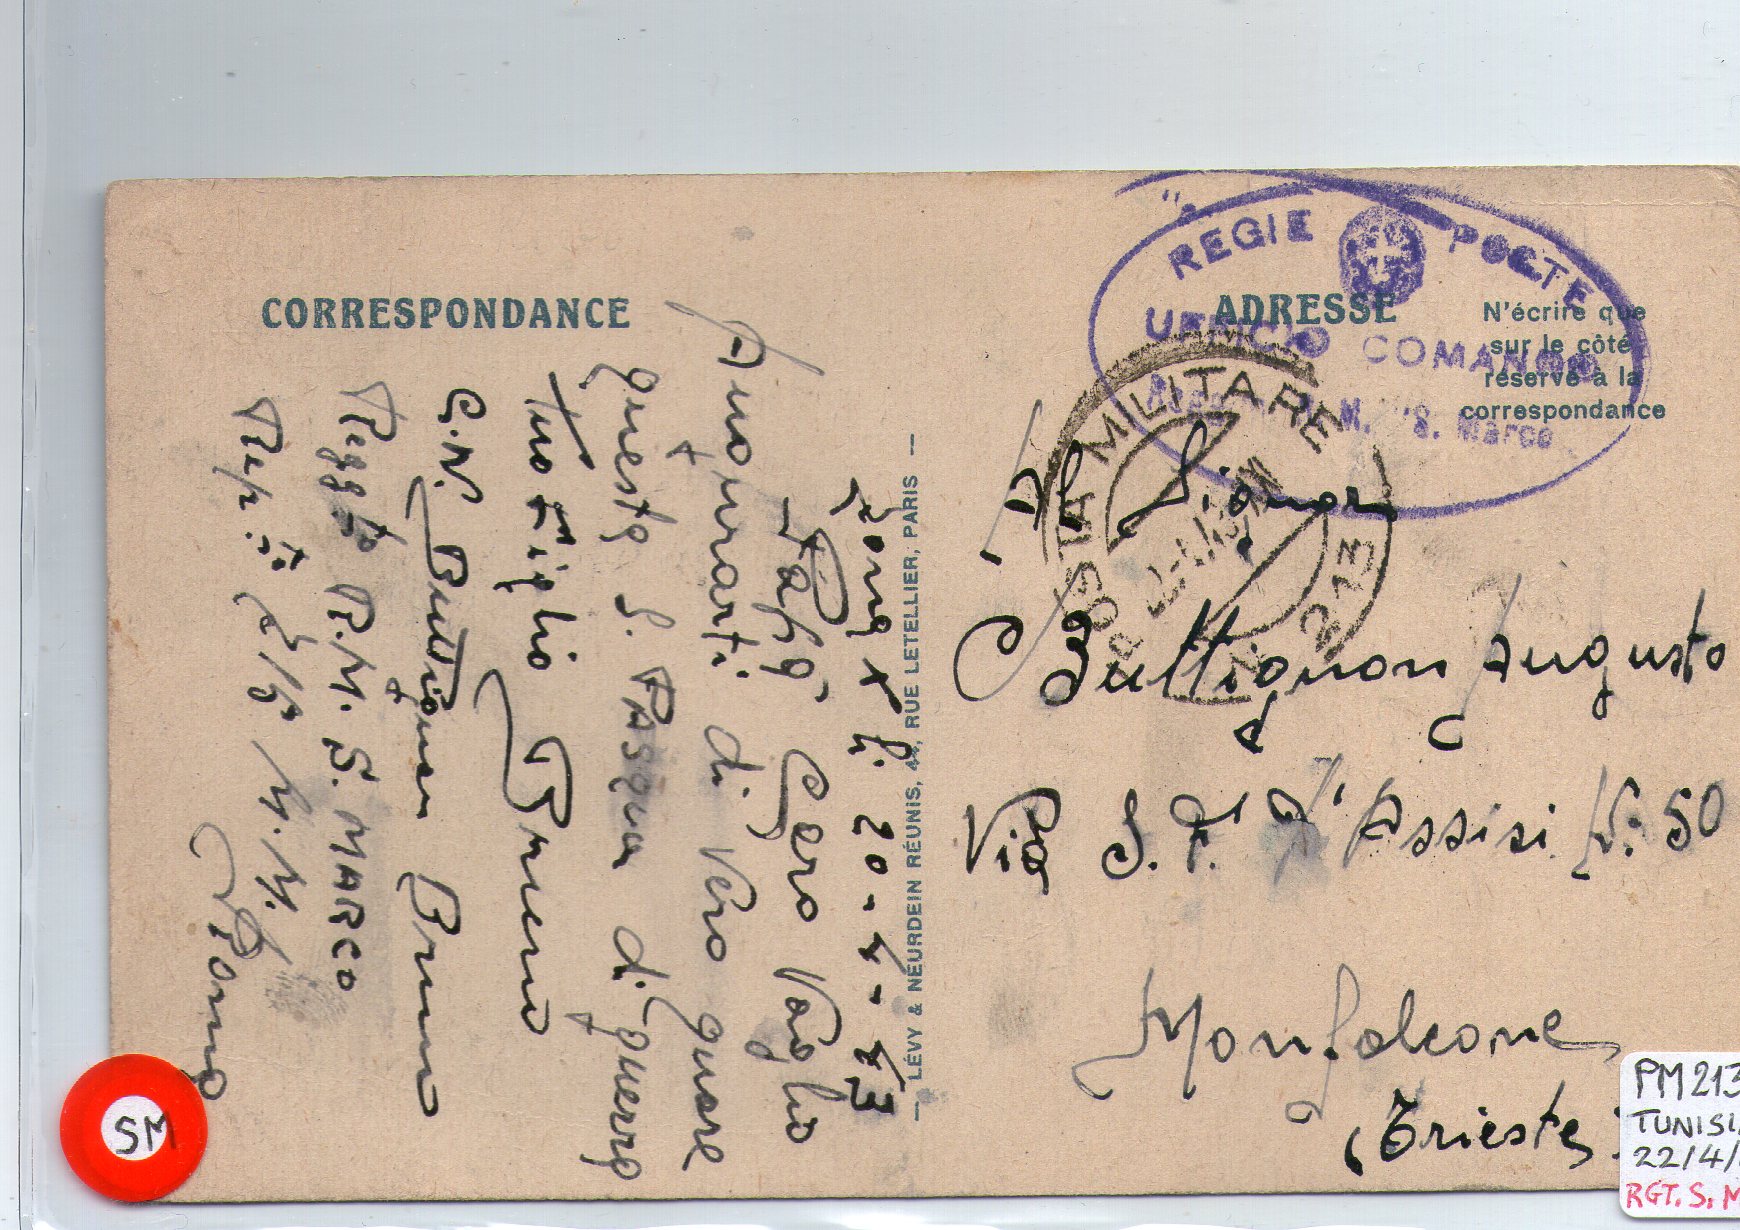 CORRESPONDANCE
ADRESSE
N'écrire que
sur le côté
réservé à la
correspondance
REGIE POSTE
UFFICIO COMANDO
M. S. Marco
POSTA MILITARE
213
Zona x li 20-4-43
Papà Caro Voglio
Augurarti di Vero quore
Questa S. PASqua di guerra
Tuo Figlio Bruno
G.N. Buttignon Bruno
Regg.to R.M. S. MARCO
Rep.
Roma
— LÉVY & NEURDEIN RÉUNIS, 44, RUE LETELLIER, PARIS —
Al Signor
Buttignon Augusto
Via S. F. d'Assisi N: 50
Monfalcone
(Trieste)
SM
PM213
TUNISI
22/4/
RGT. S. M